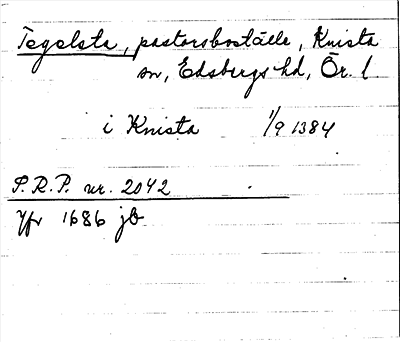 Tegelsta, pastorsboställe, Knista
sn, Edsbergs hd, Ör. l
i Knista 1/9 1384
P.R.P. nr. 2042
Yfr 1686 jb